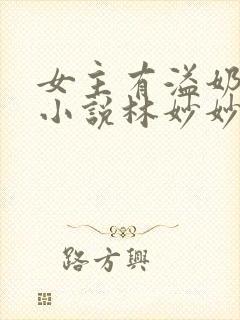 女主有溢奶
小說林妙妙
路方興